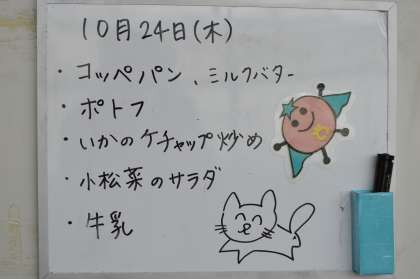 10月24日(木)
・コッペパン、ミルクバター
・ポトフ
・いかのケチャップ炒め
・小松菜のサラダ
・牛乳